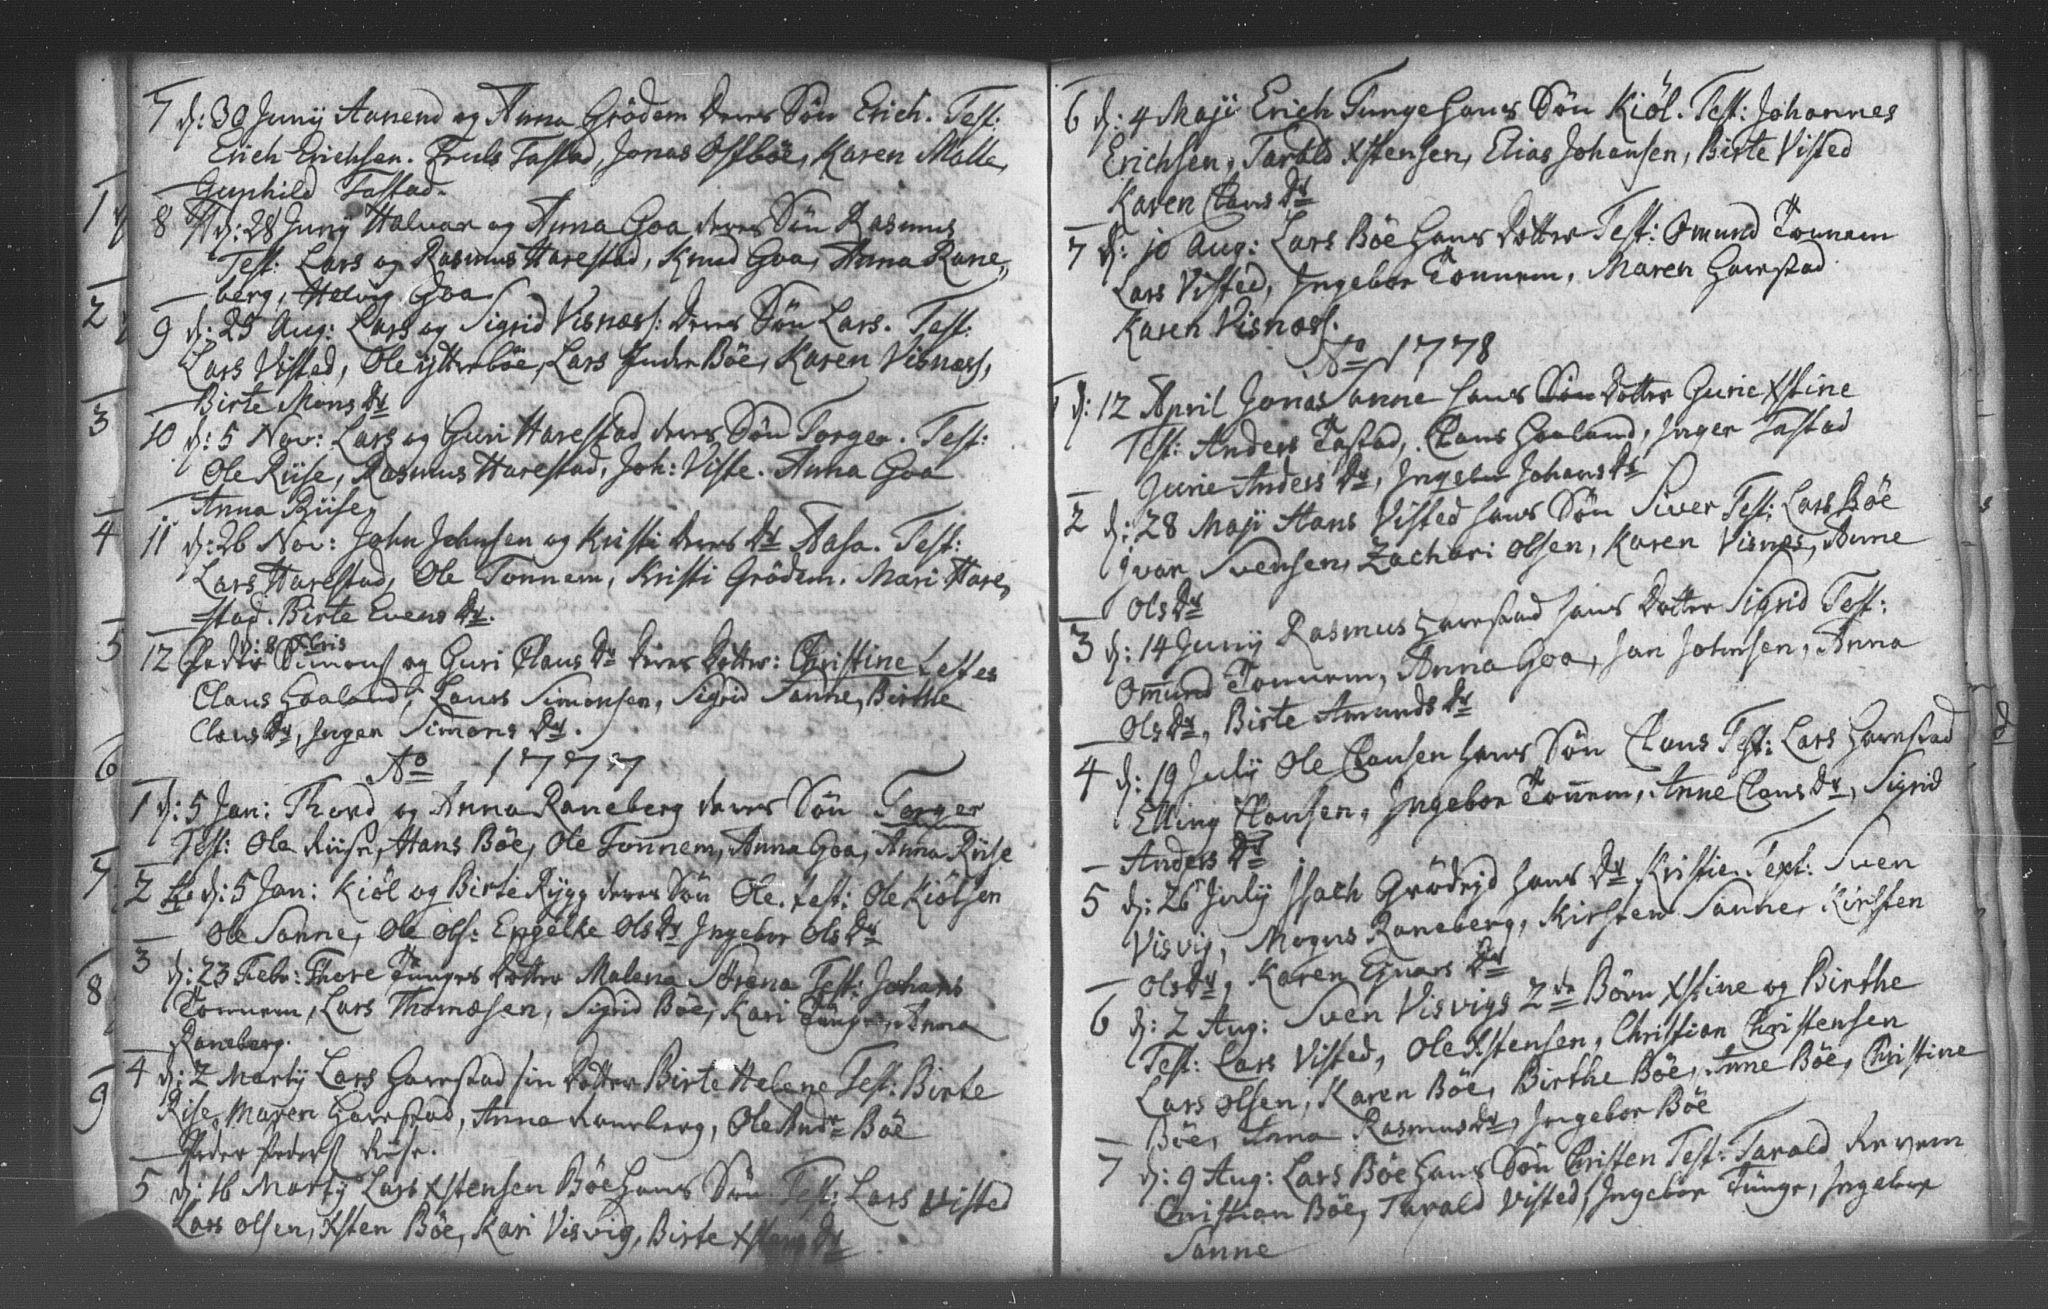 7 d: 30 Junij Aanend og Anna Grödem deres Sön Erich. Test:
Erich Erichsen. Truls Tastad, Jonas Ostböe, Karen Malle,
Gunhild Tastad.
8 d: 28 Junij Halvar og Anna Goa deres Sön Rasmus
Test: Lars og Rasmus Harestad, Knud Goa, Anna Rane-
berg, Helvig Goa
9 d: 25 Aug: Lars og Sigrid Visnæs: deres Sön Lars. Test:
Lars Visted, Ole ytterböe, Lars Indre Böe, Karen Visnæs,
Birte Mons Dr
10 d: 5 Nov: Lars og Guri Harestad deres Sön Torger. Test:
Ole Riise, Rasmus Harestad, Joh: Viste. Anna Goa
Anna Riise,
11 d: 26 Nov: John Johnsen og Kristi deres Dr Aasa. Test:
Lars Harestad, Ole Tonnem, Kristi Grödem. Mari Hare,
=stad. Birte Evens Dr.
d: 8 Xbris
12 Peder Simons og Guri Claus Dr deres Dotter: Christine Testes
Claus Haaland, Laurs Simonsen, Sigrid Sanne, Birthe
Claus Dr, Inger Simons Dr.
Ao 1777
1 d: 5 Jan: Thord og Anna Raneberg deres Sön Torger
Test: Ole Riise, Hans Böe, Ole Tonnem, Anna Goa, Anna Riise
2 d: 5 Jan: Kiöl og Birte Rygg deres Sön Ole. test: Ole Kiölsen
Ole Sanne, Ole Ols: Engelke Ols Dr Ingebor Ols Dr
3 d: 23 Febr: Thore Tunges Dotter Malena Serena Test: Johans
Tonnem, Lars Thomæsen, Sigrid Böe, Kari Tunge, Anna
Raneberg.
4 d: 2 Martij Lars Harestad sin Dotter Birte Helene Test: Birte
Rise, Maren Harestad, Anna Raneberg, Ole Andr Böe
Peder Peders Riise.
5 d: 16 Martij Lars Xstensen Böe hans Sön Test: Lars Visted
Lars Olsen, Xsten Böe, Kari Visvig, Birte Dr
6 d: 4 Maji Erich Tunge hans Sön Kiöl. Test: Johannes
Erichsen, Tarald Xstensen, Elias Johansen, Birte Visted
Karen Claus Dr
7 d: 10 Aug: Lars Böe hans Dotter Test: Omund Tonnem
Lars Visted, Ingebor Tonnem, Maren Harestad
Karen Visnæs.
Ao 1778
1 d: 12 April Jonas Sanne hans Dotter Gurie Xstine
Test: Anders Tastad, Claus Haaland, Inger Tastad
Gurie Anders Dr, Ingebor Johans Dr
2 d: 28 Maji Hans Visted hans Sön Siver Test: Lars Böe
Ivar Svensen, Zachari Olsen, Karen Visnes, Anne
Ols Dr
3 d: 14 Junij Rasmus Harestad hans Dotter Sigrid Test:
Omund Tonnem, Anna Goa, Jan Johnsen, Anna
Ols Dr, Birte Amunds Dr
4 d: 19 Julij Ole Clausen hans Sön Claus Test: Lars Harestad
Elling Hansen, Ingebor Tonnem, Anne Claus Dr, Sigrid
Anders Dr
5 d: 26 Julij Isach Grödejd hans Dr Kristie. Test: Sven
Visvig, Mogns Raneberg, Kirsten Sanne, Kirsten
Ols Dr, Karen Ejnars Dr
6 d: 2 Aug: Sven Visvigs 2de Börn Xstine og Birthe
Test: Lars Visted, Ole Xstensen, Christian Christensen
Lars Olsen, Karen Böe, Birthe Böe, Anne Böe, Christine
Böe, Anna Rasmus Dr, Ingebor Böe
7 d: 9 Aug: Lars Böe hans Sön Christen Test: Tarald Revem
Christian Böe, Tarald Visted, Ingebor Tunge, Ingebor
Sanne